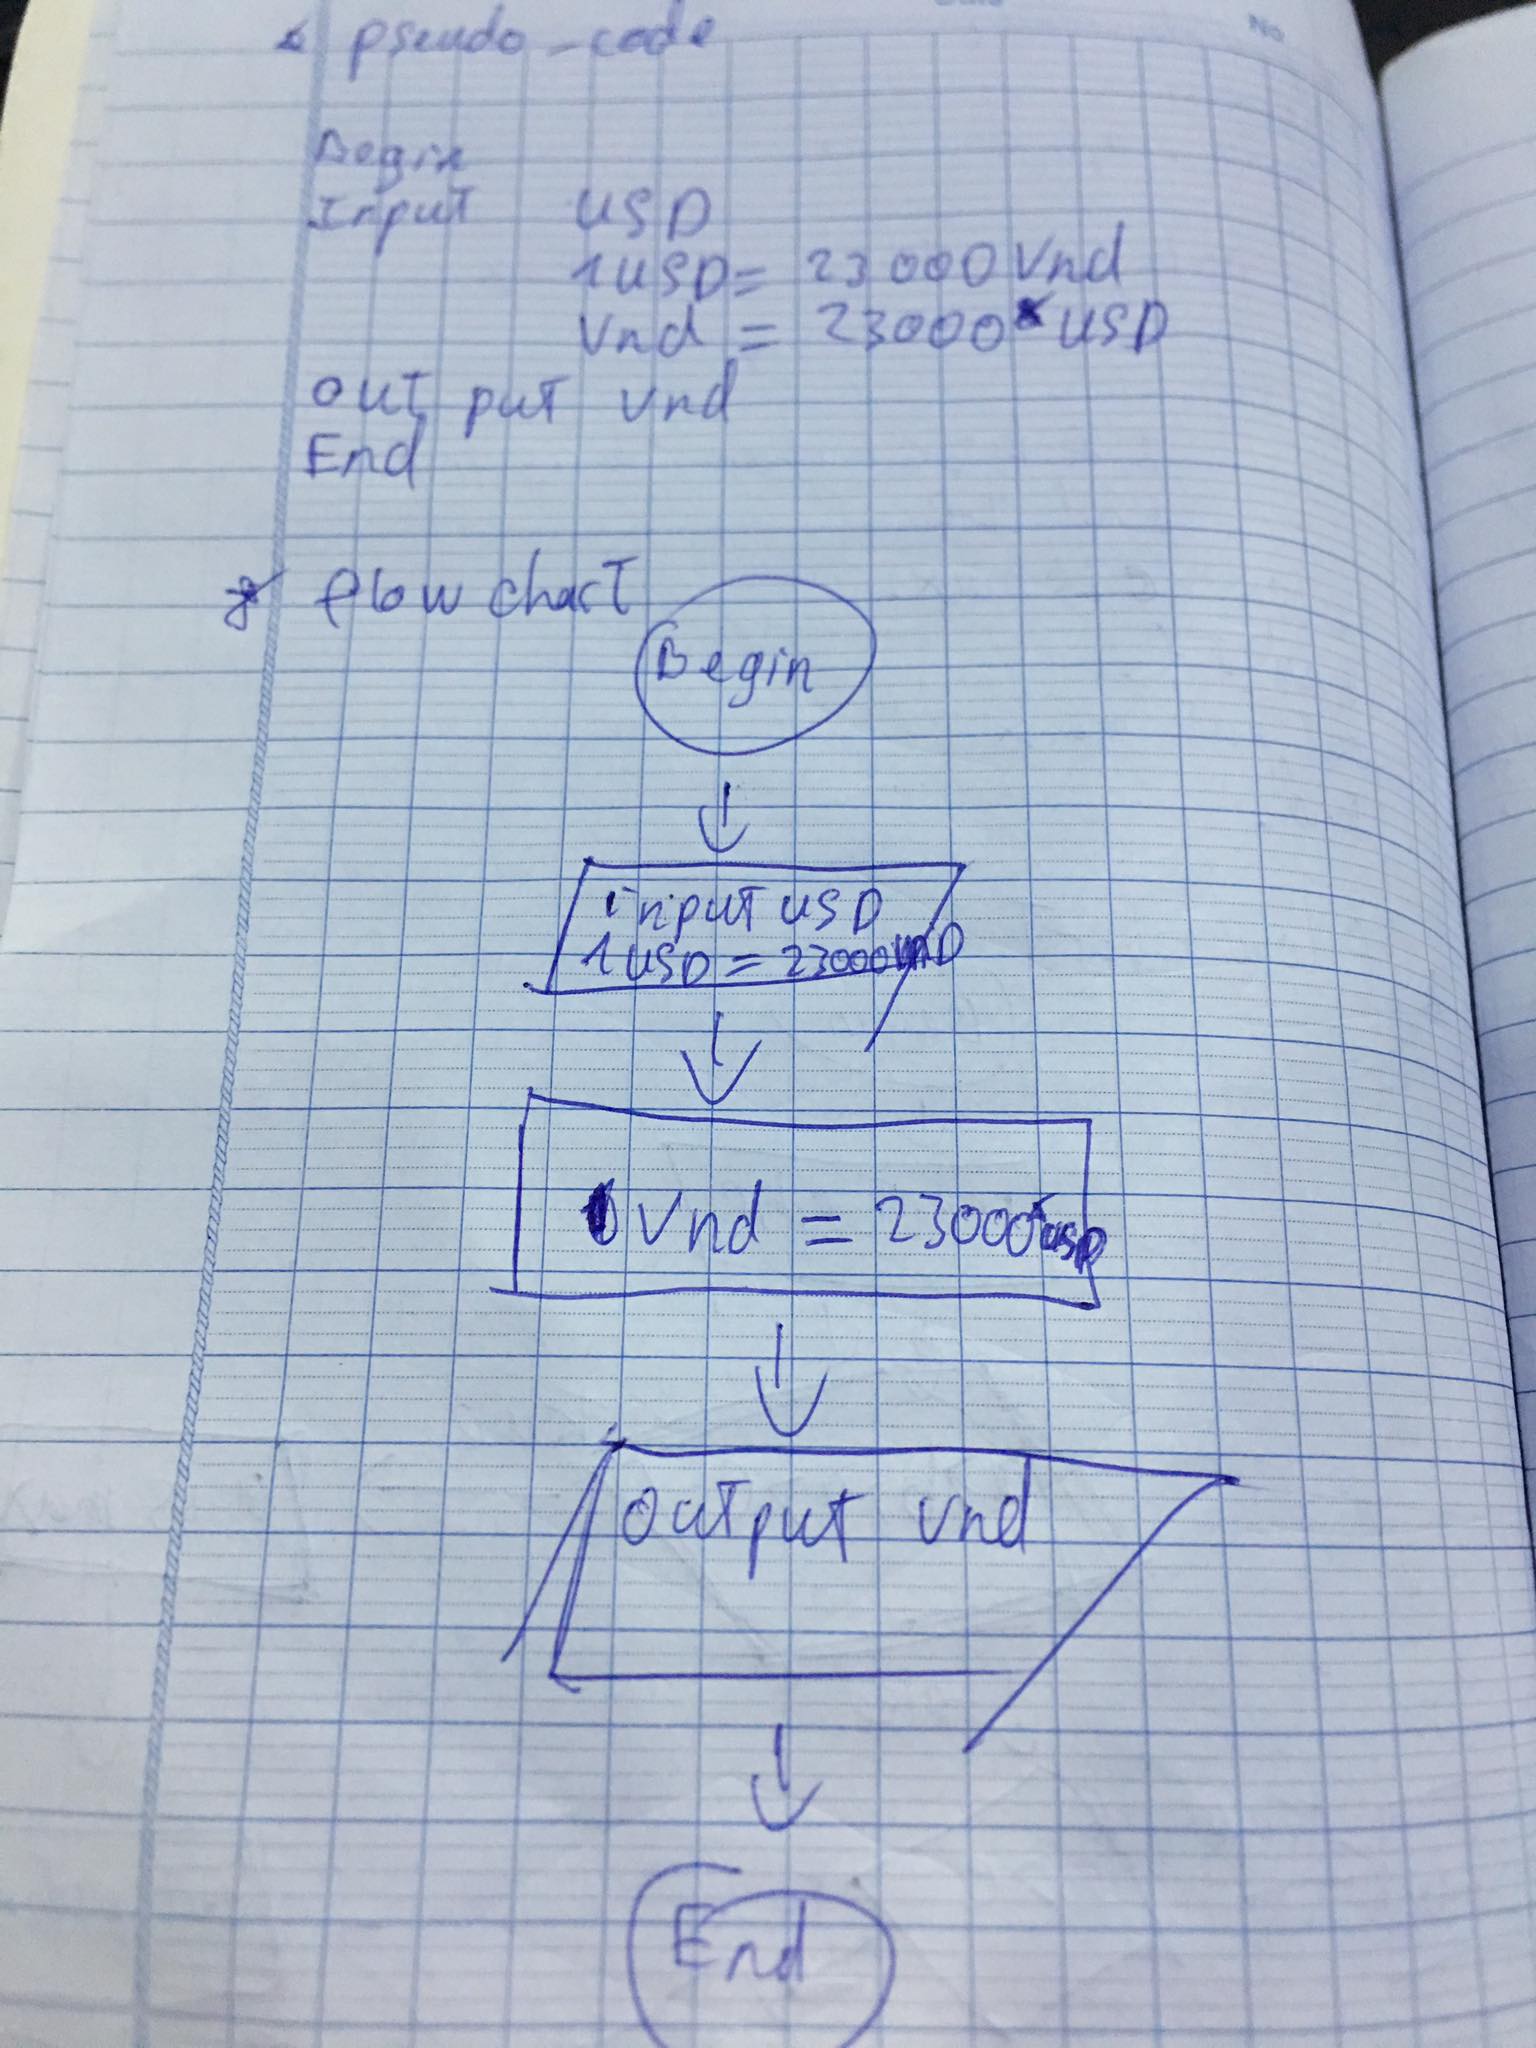 pseudo-code
No
Begin
Input USD
1USD = 23000 Vnd
Vnd = 23000 * USD
out put vnd
End
* flow chart
Begin
input USD
1USD = 23000 VND
Vnd = 23000*USD
output vnd
End